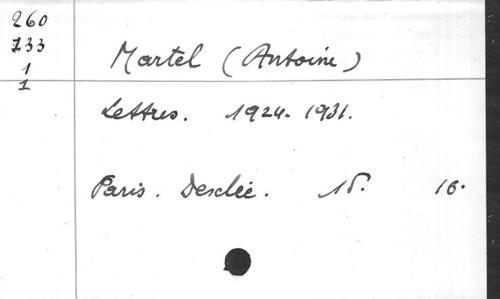 260
733
1
1
Martel (Antoine)
Lettres. 1924-1931.
Paris. Desclée. 16.